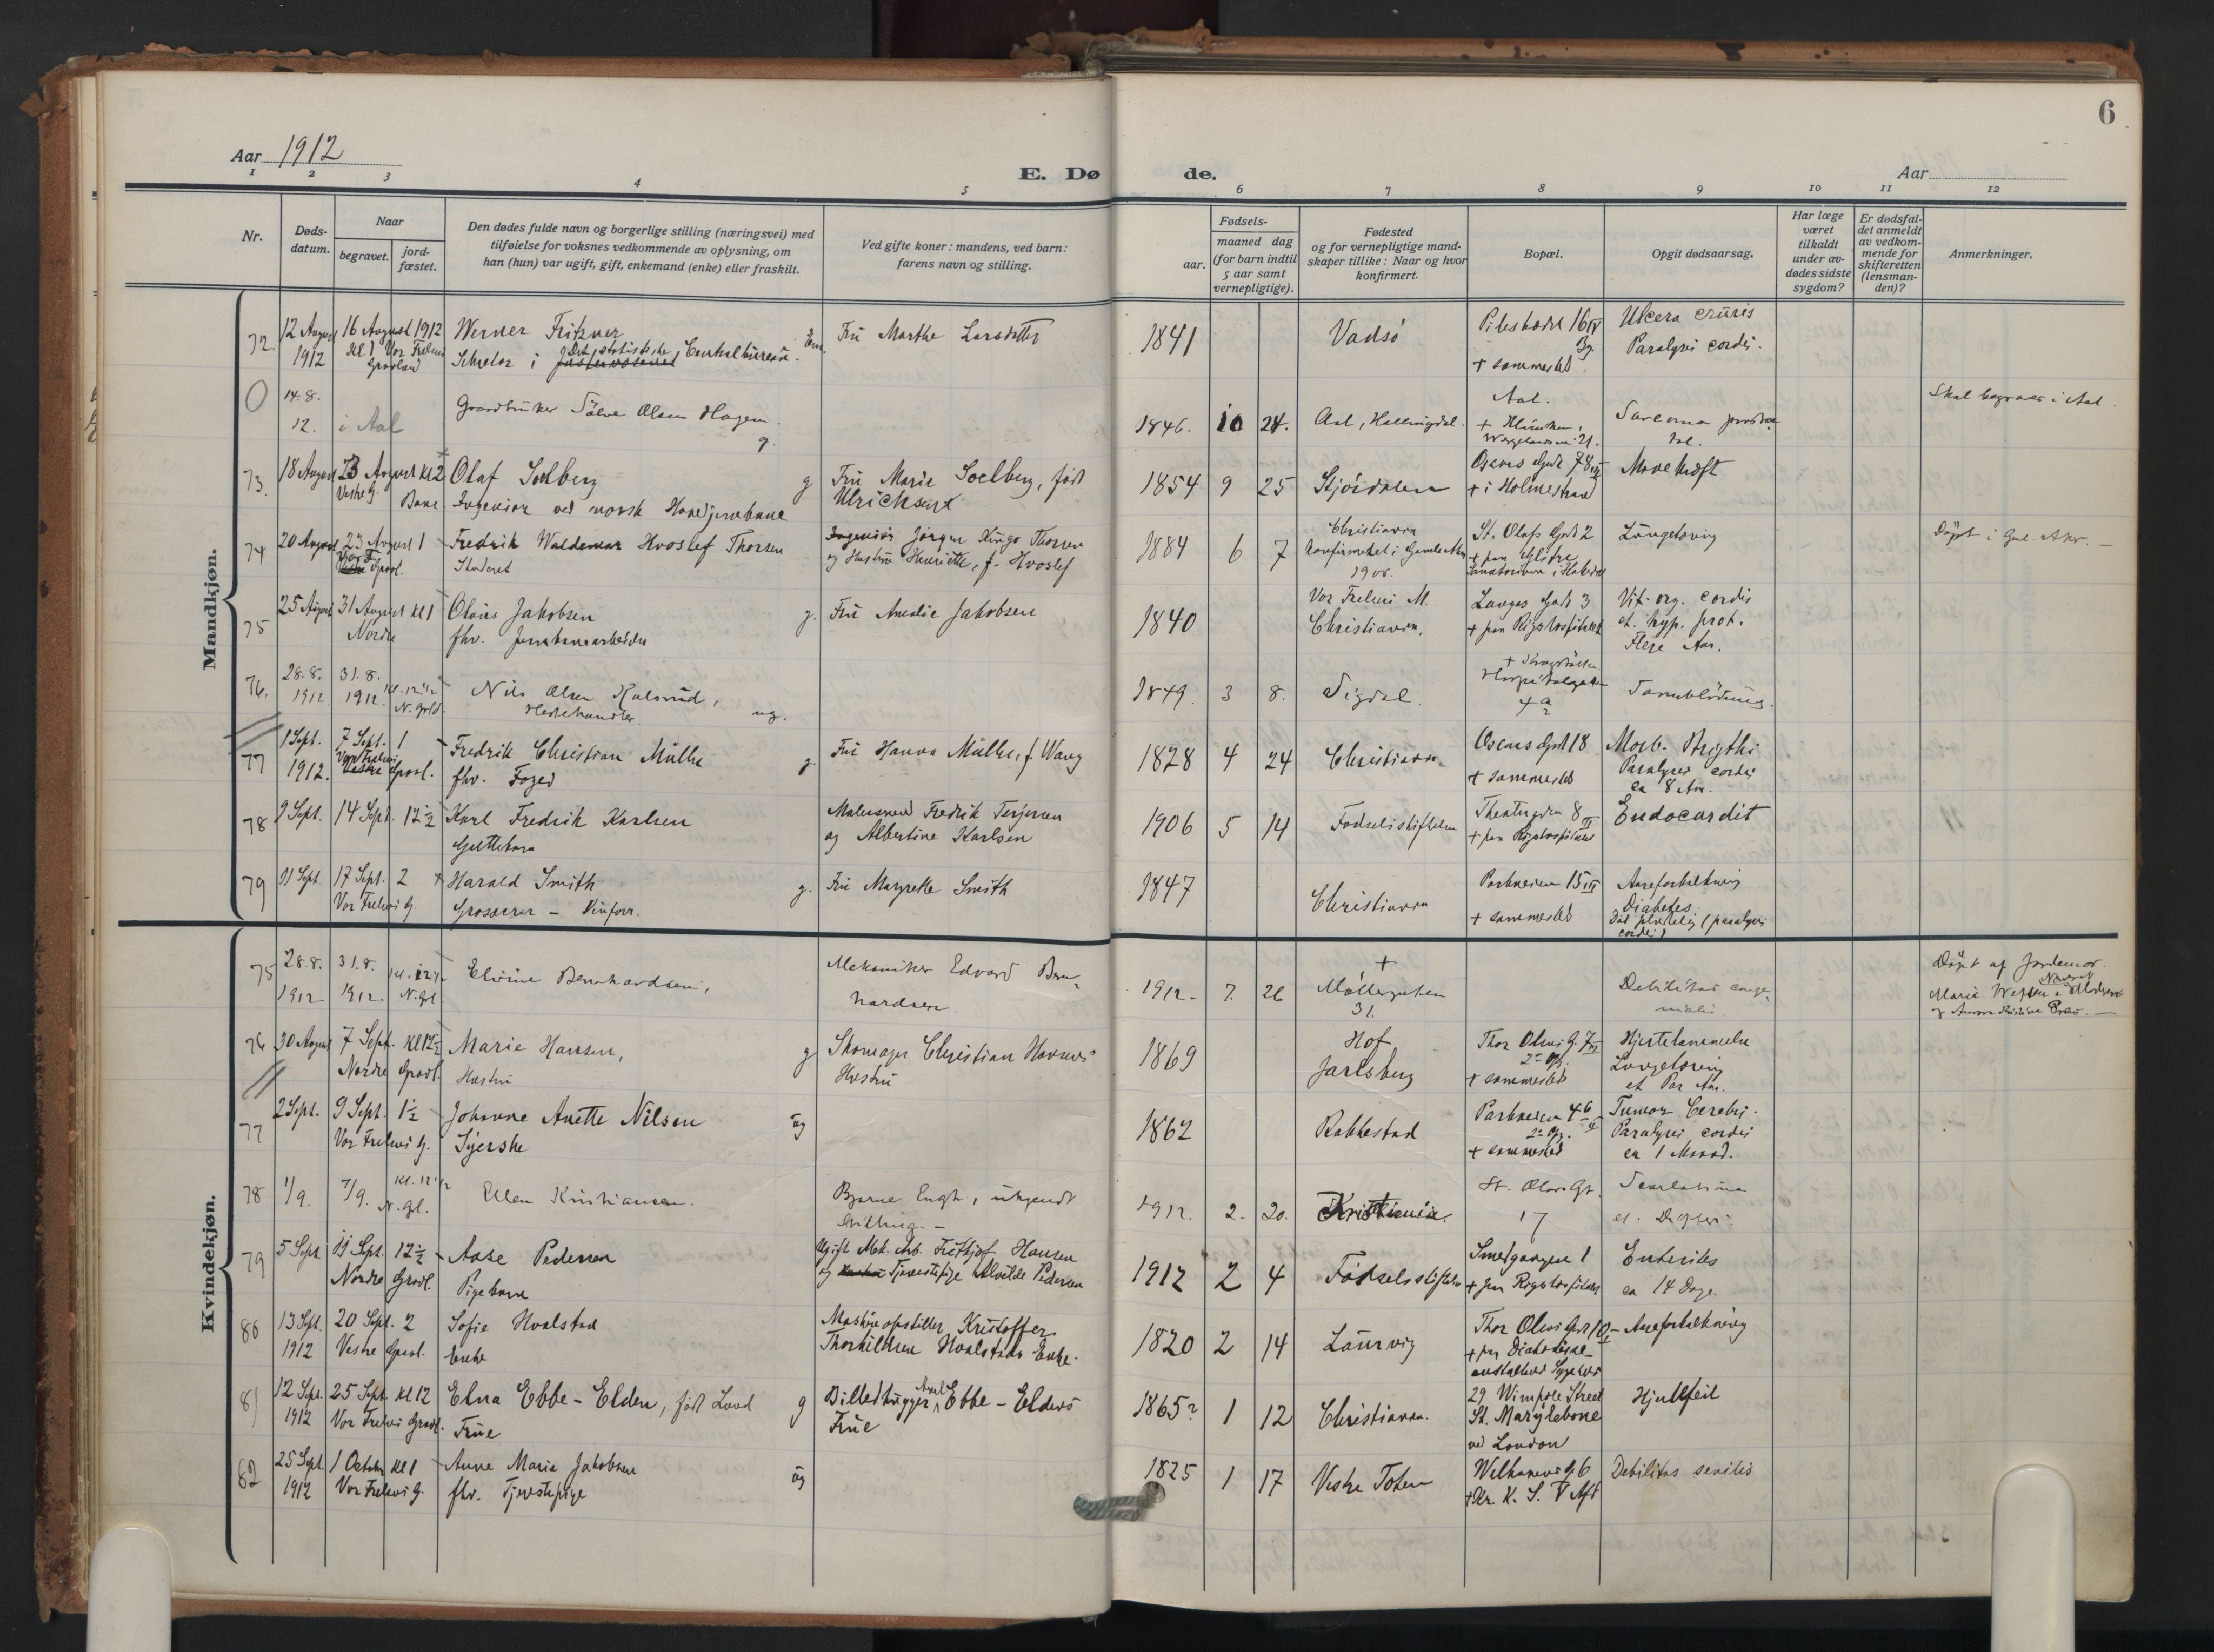 6
Aar 1912
E. Dø de.
Aar
1 2 3 4 5 6 7 8 9 10 11 12
Nr.
Døds-
datum.
Naar
begravet.
jord-
fæstet.
Den dødes fulde navn og borgerlige stilling (næringsvei) med
tilføielse for voksnes vedkommende av oplysning, om
han (hun) var ugift, gift, enkemand (enke) eller fraskilt.
Ved gifte koner: mandens, ved barn:
farens navn og stilling.
Fødsels-
aar.
maaned dag
(for barn indtil
5 aar samt
vernepligtige).
Fødested
og for vernepligtige mand-
skaper tillike: Naar og hvor
konfirmert.
Bopæl.
Opgit dødsaarsag.
Har læge
været
tilkaldt
under av-
dødes sidste
sygdom?
Er dødsfal-
det anmeldt
av vedkom-
mende for
skifteretten
(lensman-
den)?
Anmerkninger.
Mandkjøn.
72. 12 August 16 August 1912 Werner Fritzner Em. Fru Marthe Larsdatter 1841 Vadsø Pilestrædet 16 IV Ulcera cruris
1912 Kl 1 Vor Frelsers Sekretær i Det statistiske Centralbureau. Bg. Paralysis cordis.
Gravlund + sammested
14.8. Gaardbruker Sølve Olsen Hagen Aal. Skal begraves i Aal.
12. i Aal g. 1846. 10 24. Aal, Hallingdal. + Klinikken, Sarcoma
Wergelandsvn. 21.
73. 18 August 23 August kl 2 Olaf Soelberg g Fru Marie Soelberg, født 1854 9 25 Stjørdalen Oscars Gade 78 III Mavekræft
Vestre G. Ulricksen + i Holmestrand
Bane Ingeniør ved norsk Hovedjernbane
74 20 August 23 August 1 Fredrik Waldemar Hvoslef Thorsen Ingeniør Jørgen Kingo Thorsen 1884 6 7 Christiania St. Olafs Gade 2 Lungetæring Døpt i Gml. Aker.
Vor Fr. Gravl. Student og Hustru Henriette, f. Hvoslef konfirmeret i Gamle Aker + paa Glitre
Sanatorium i Hakedal
75 25 August 31 August kl 1 Olaus Jakobsen g. Fru Amalie Jakobsen 1840 Vor Frelsers M. Langes Gade 3 Vit. org. cordis
Nordre fhv. Jernbanearbeider Christiania. + paa Rigshospitalet et. hyp. prot.
Flere Aar.
76. 28.8. 31.8. Nils Olsen Kalsrud, 1849. 3 8. Sigdal. Hospitalsgaten Tarmblødning.
1912 1912. kl. 12 1/2 Hestehandler ug. 4 a
N. Grld.
77 1 Sept. 7 Sept. 1 Fredrik Christian Müller g. Fru Hanna Müller, f. Wang 1828 4 24 Christiania Oscars Gade 18 Morb. Brigthi
1912. Vor Frelsers Gravl. fhv. Foged + sammested Paralysis cordis
ca 8 Aar.
78 9 Sept. 14 Sept. 12 1/2 Karl Fredrik Karlsen Malersvend Fredrik Terjesen 1906 5 14 Fødselsstiftelsen Theatergaden 8 III Endocardit
Guttebarn og Albertine Karlsen + paa Rigshospitalet
79 11 Sept. 17 Sept. 2 Harald Smith g. Fru Margrethe Smith 1847 Christiania Parkveien 15 III Aareforkalkning
Vor Frelsers G. Grosserer - Vinforr. + sammested Diabetes.
Død pludselig (paralysis
cordis)
Kvindekjøn.
75 28.8. 31.8. Elvine Bernhardsen, Mekaniker Edvard Bern- 1912. 7. 26 + Møllergaten Debilitas conge- Døpt af Jordemor
1912 1912. N. Gl. hardsen. 31. nitalis.
76 30 August 7 Sept. kl 12 1/2 Marie Hansen, g Skomager Christian Hansens 1869 Hof Thor Olsens G. 7 III Hjertelammelse
Nordre Gravl. Hustru Hustru Jarlsberg 2den Opg. Lungetæring
+ sammesteds et Par Aar.
77 2 Sept. 9 Sept. 1 1/2 Johanne Anette Nilsen ug 1862 Rakkestad Parkveien 4 b Tumor Cerebri.
Vor Frelsers G. Syerske 2den Opg. Paralysis cordis
+ sammested ca 1 Maaned.
78 1/9. 7/9. kl. 12 1/2 Ellen Kristiansen. Bjarne Engh, ukjendt 1912. 2. 20. Kristiania. St. Olavs Gt. Scarlatina
N. Gl. stilling. 17
79 5 Sept. 11 Sept. 12 1/2 Aase Pedersen Ugift Mek. Arb. Frithjof Hansen 1912 2 4 Fødselsstiftelsen Smedgangen 1 Enterites
Nordre Gravl. Pigebarn og Tjenestepige Alvilde Pedersen + paa Rigshospitalet ca 14 Dage.
80 13 Sept. 20 Sept. 2 Sofie Hvalstad Maskinopstiller Kristoffer 1820 2 14 Laurvig Thor Olsens Gade 10 Aareforkalkning
1912 Vestre Gravl. Enke Thorkildsen Hvalstads Enke. + paa Diakonisse-
anstaltens Sygehus
81 12 Sept. 25 Sept. kl 12 Elna Ebbe-Elden, født Lund g Billedhugger Axel Ebbe-Eldens 1865? 1 12 Christiania. 29 Wimpole Street Hjertefeil
1912 Vor Frelsers Gravl. Frue Frue St. Marylebone
ved London
82 25 Sept. 1 October kl 1 Anne Maria Jakobsen ug 1825 1 17 Vestre Toten Welhavens G 6 Debilitas senilis
1912 Vor Frelsers G. fhv. Tjenestepige + Kr. K. S. V Afd